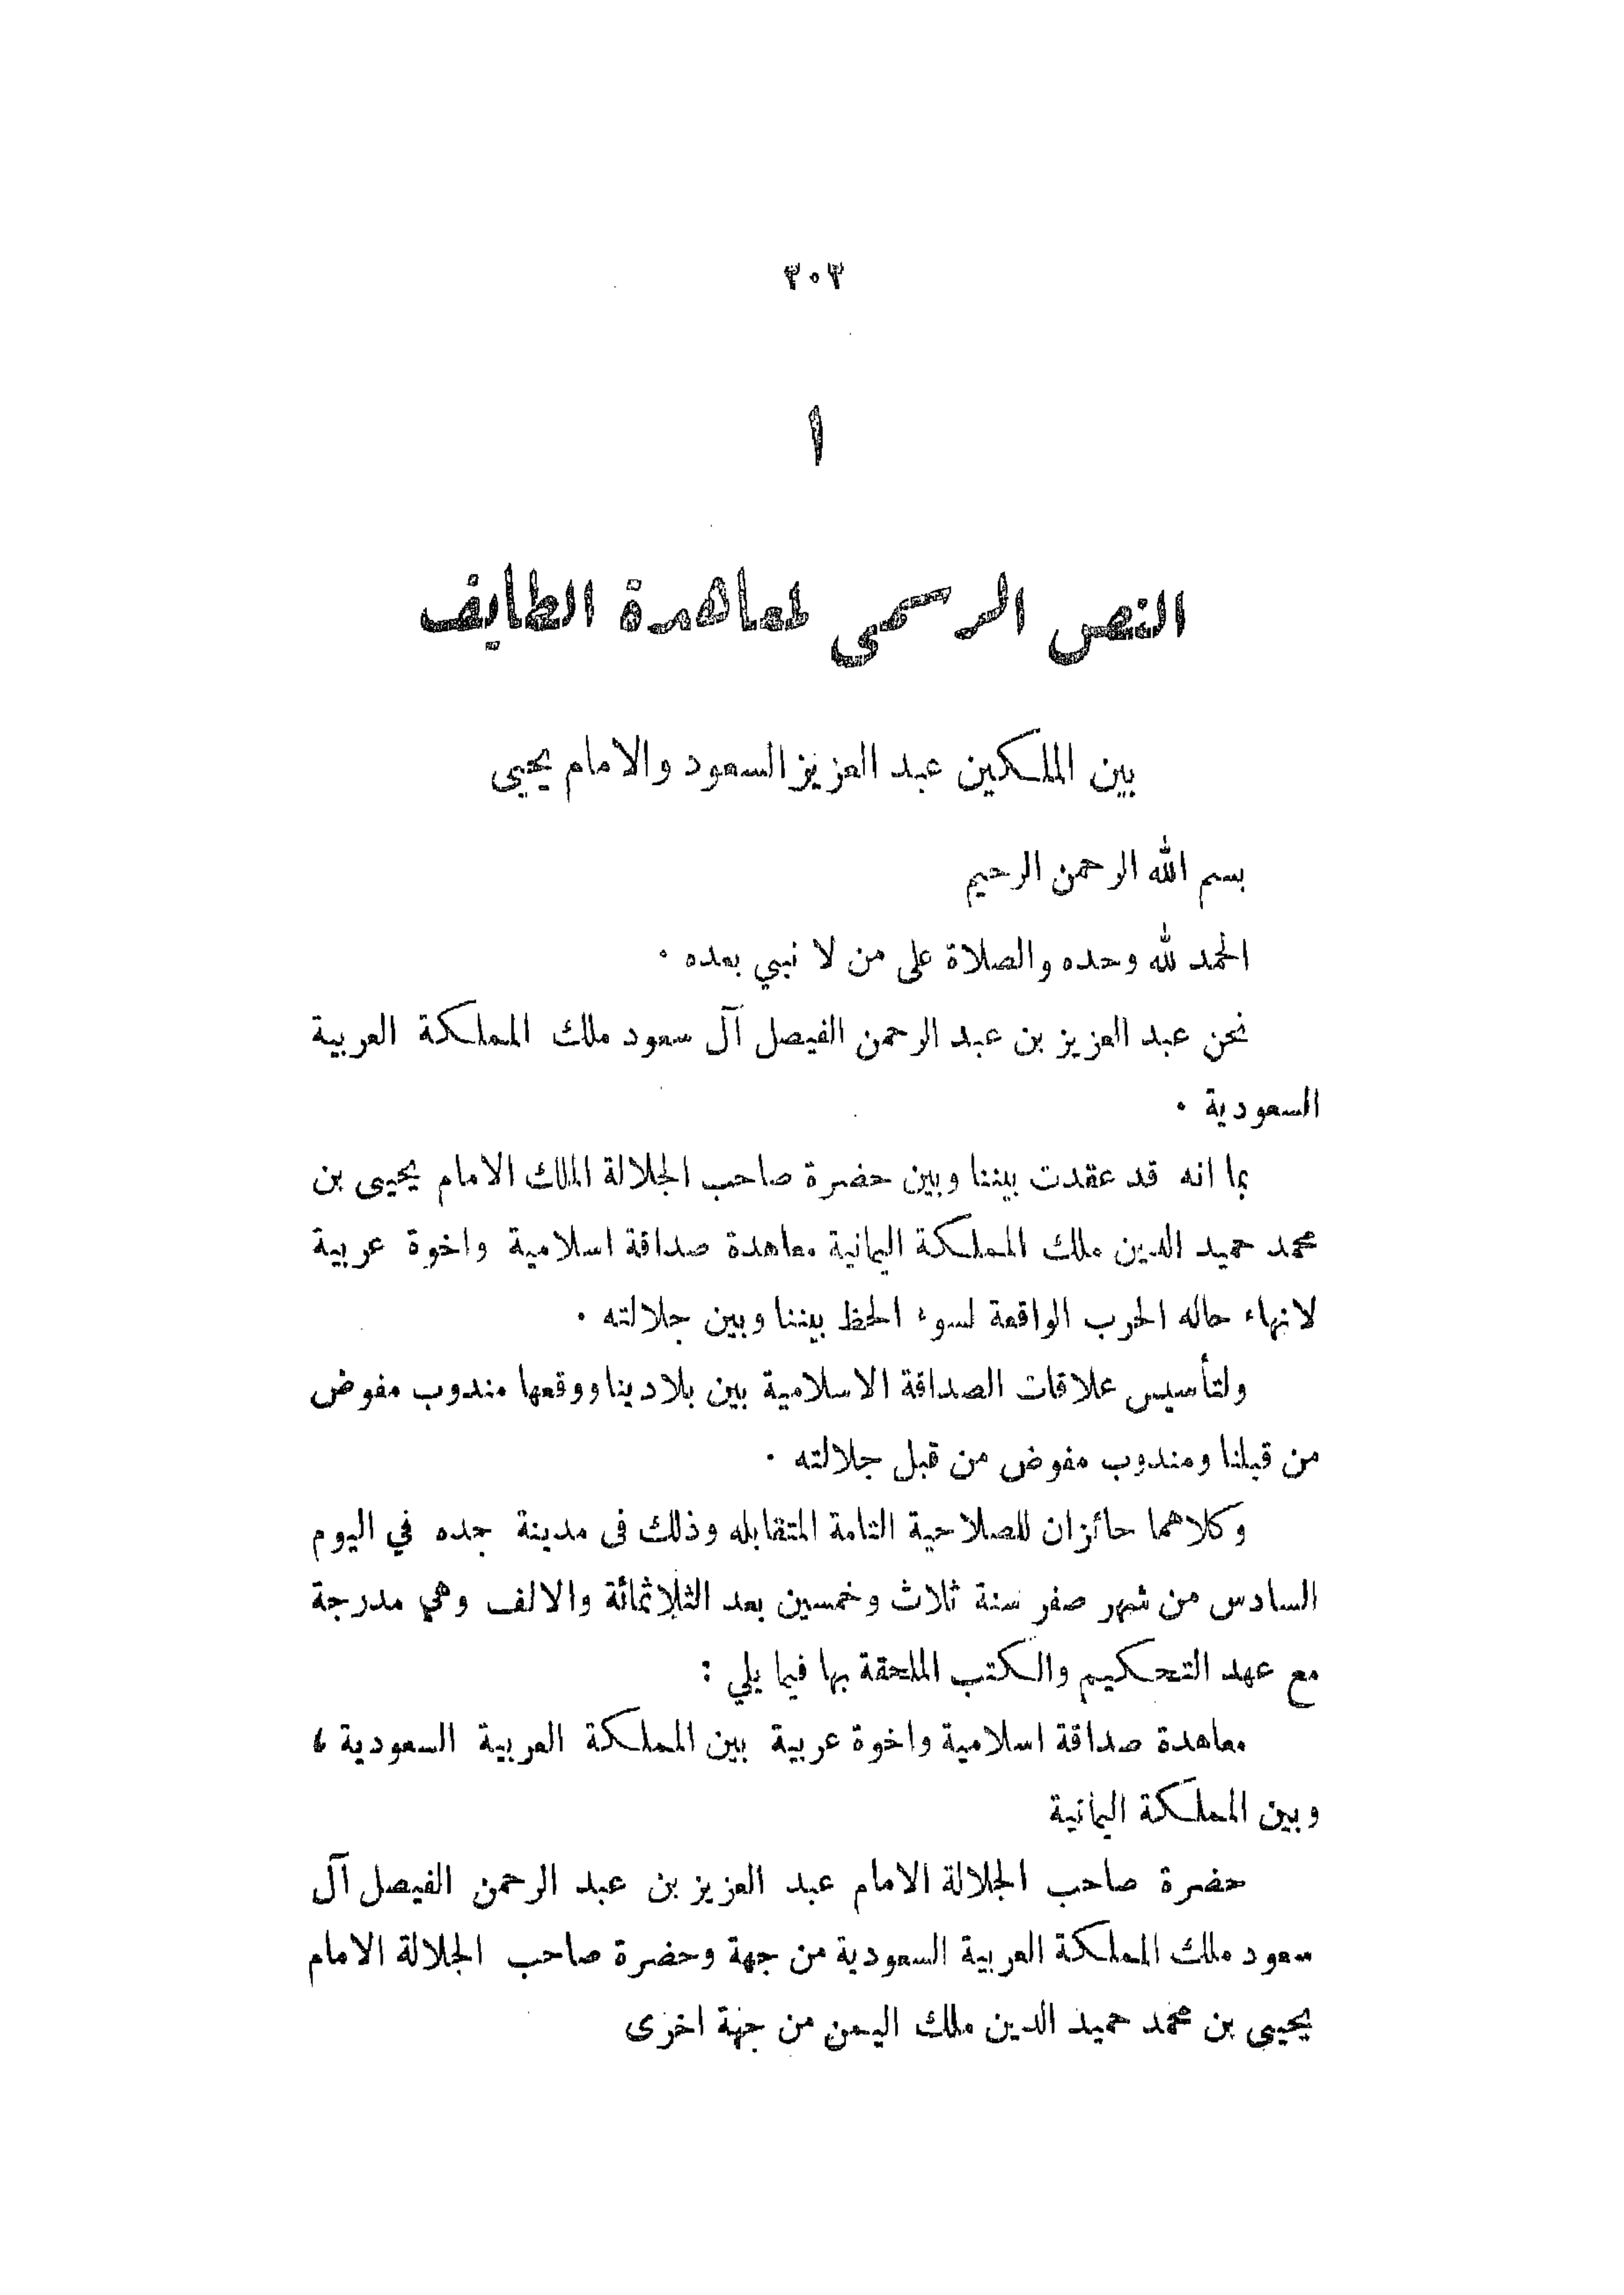 ٣٠٣
١
النص الرسمى لمعاهدة الطايف
بين الملكين عبد العزيز السعود والامام يحيى
بسم الله الرحمن الرحيم
الحمد لله وحده والصلاة على من لا نبي بعده ٠
نحن عبد العزيز بن عبد الرحمن الفيصل آل سعود ملك المملكة العربية
السعودية ٠
بما انه قد عقدت بيننا وبين حضرة صاحب الجلالة الملك الامام يحيى بن
محمد حميد الدين ملك المملكة اليمانية معاهدة صداقة اسلامية واخوة عربية
لانهاء حاله الحرب الواقعة لسوء الحظ بيننا وبين جلالته ٠
ولتأسيس علاقات الصداقة الاسلامية بين بلادينا ووقعها مندوب مفوض
من قبلنا ومندوب مفوض من قبل جلالته ٠
وكلاهما حائزان للصلاحية التامة المتقابله وذلك فى مدينة جده في اليوم
السادس من شهر صفر سنة ثلاث وخمسين بعد الثلاثمائة والالف وهي مدرجة
مع عهد التحكيم والكتب الملحقة بها فيما يلي :
معاهدة صداقة اسلامية واخوة عربية بين المملكة العربية السعودية ،
وبين المملكة اليمانية
حضرة صاحب الجلالة الامام عبد العزيز بن عبد الرحمن الفيصل آل
سعود ملك المملكة العربية السعودية من جهة وحضرة صاحب الجلالة الامام
يحيى بن محمد حميد الدين ملك اليمن من جهة اخرى